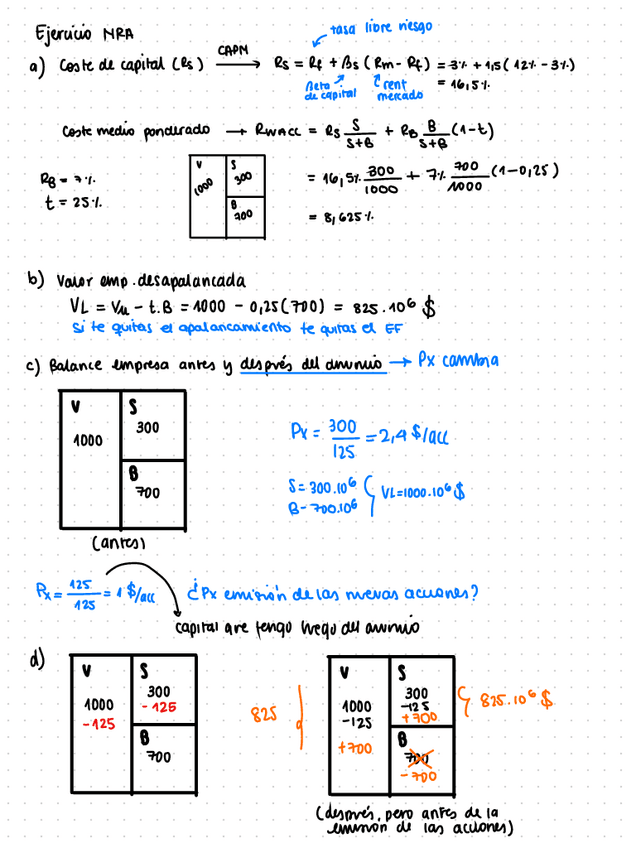 Ejercicio NRA
tasa libre riesgo
a) Coste de capital (Rs) CAPM → Rs = Rf + βs (Rm - Rf) = 3% + 1,5 (12% - 3%)
Beta de capital
rent mercado
= 16,5%
Coste medio ponderado → RWACC = Rs S/(S+B) + RB B/(S+B) (1-t)
RB = 7%
t = 25%
V 1000
S 300
B 700
= 16,5% 300/1000 + 7% 700/1000 (1-0,25)
= 8,625%
b) Valor emp. desapalancada
VL = Vu - t.B = 1000 - 0,25 (700) = 825.10⁶ $
si te quitas el apalancamiento te quitas el EF
c) Balance empresa antes y después del anuncio → Px cambia
V 1000
S 300
B 700
(antes)
Px = 300/125 = 2,4 $/acc
S = 300.10⁶
B - 700.10⁶
VL = 1000.10⁶ $
Px = 125/125 = 1 $/acc
¿Px emisión de las nuevas acciones?
capital que tengo luego del anuncio
d)
V 1000 -125
S 300 -125
B 700
825
V 1000 -125 +700
S 300 -125 +700
B 700 -700
825.10⁶ $
(después, pero antes de la
emisión de las acciones)